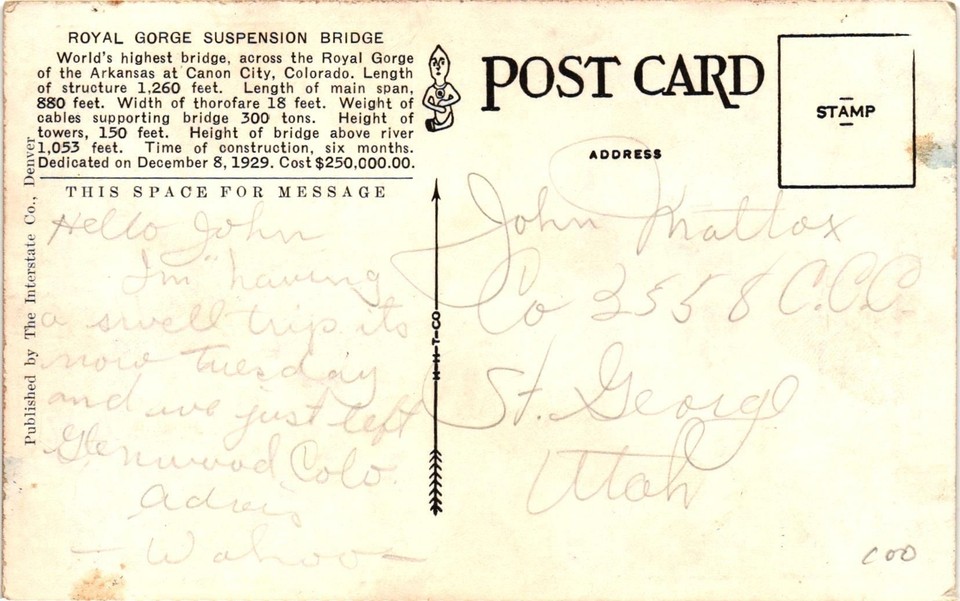 ROYAL GORGE SUSPENSION BRIDGE
World's highest bridge, across the Royal Gorge
of the Arkansas at Canon City, Colorado. Length
of structure 1,260 feet. Length of main span,
880 feet. Width of thorofare 18 feet. Weight of
cables supporting bridge 300 tons. Height of
towers, 150 feet. Height of bridge above river
1,053 feet. Time of construction, six months.
Dedicated on December 8, 1929. Cost $250,000.00.
THIS SPACE FOR MESSAGE
Hello John
Im having
a swell trip its
now tuesday
and we just left
Glenwood Colo.
— Wahoo —
Published by The Interstate Co., Denver
POST CARD
STAMP
ADDRESS
John Mattox
Co 3558 C.C.C.
St. George
Utah